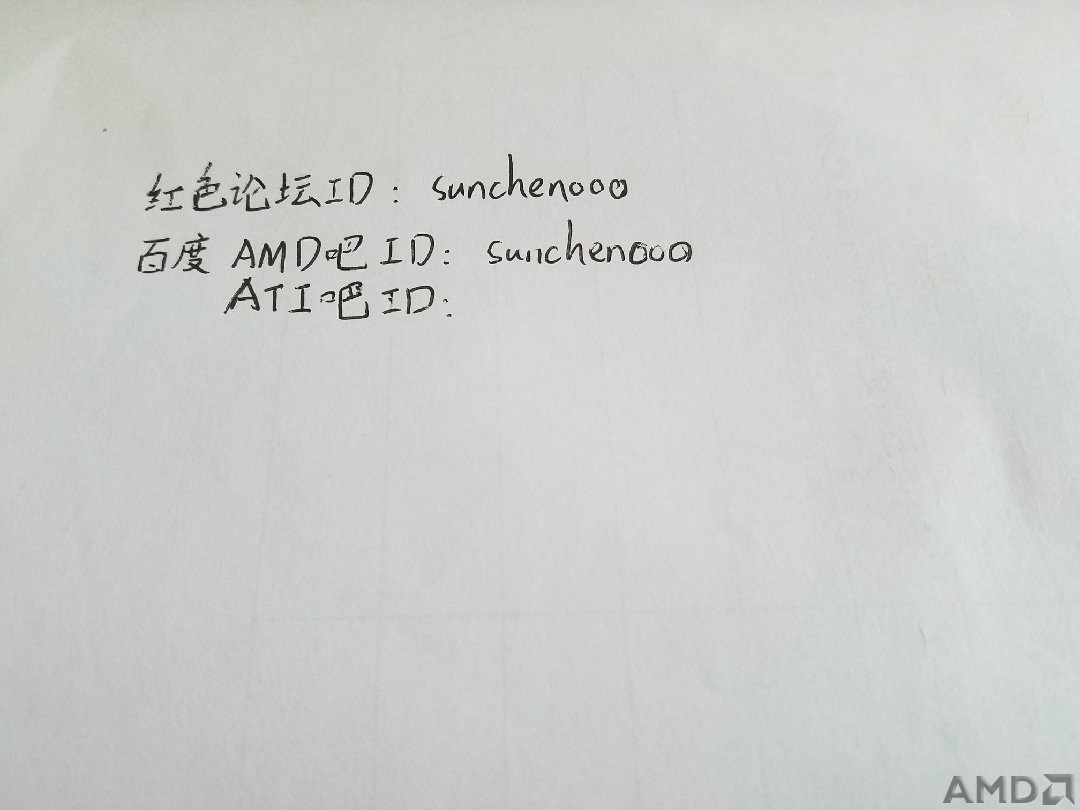 红色论坛ID：sunchen000
百度 AMD吧 ID：sunchen000
ATI吧 ID：
AMD